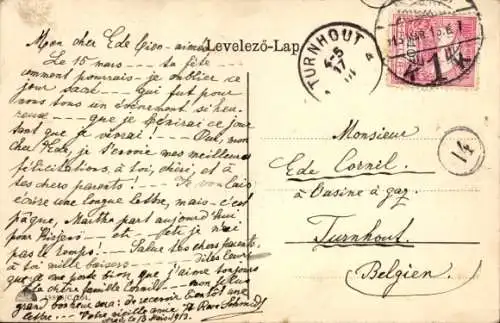 Levelező-Lap
Mon cher Ede bien-aimé
Le 15 mars --- ta fête ---
comment pourrais-je oublier ce
jour sacré --- qui fut pour
nous tous un événement si heu-
reux --- que je bénirai ce jour
tant que je vivrai! --- Oui, mon
cher Ede, je t'envoie mes meilleures
félicitations, à toi, chéri, et à
tes chers parents! --- Je voulais
écrire une longue lettre, mais - c'est
pâque, Martha part aujourd'hui
pour --- etc --- etc je n'ai
pas le temps! --- Salue tes chers parents,
à toi mille baisers --- dis leur
que je que j'aime toujours
ta chère famille Cornil --- mon plus
grand bonheur de recevoir bientôt une
lettre --- Votre vieille amie
13 Mars 1913.
TURNHOUT
4-5
17
1
Monsieur
Ede Cornil
à l'usine à gaz
Turnhout
Belgien
14